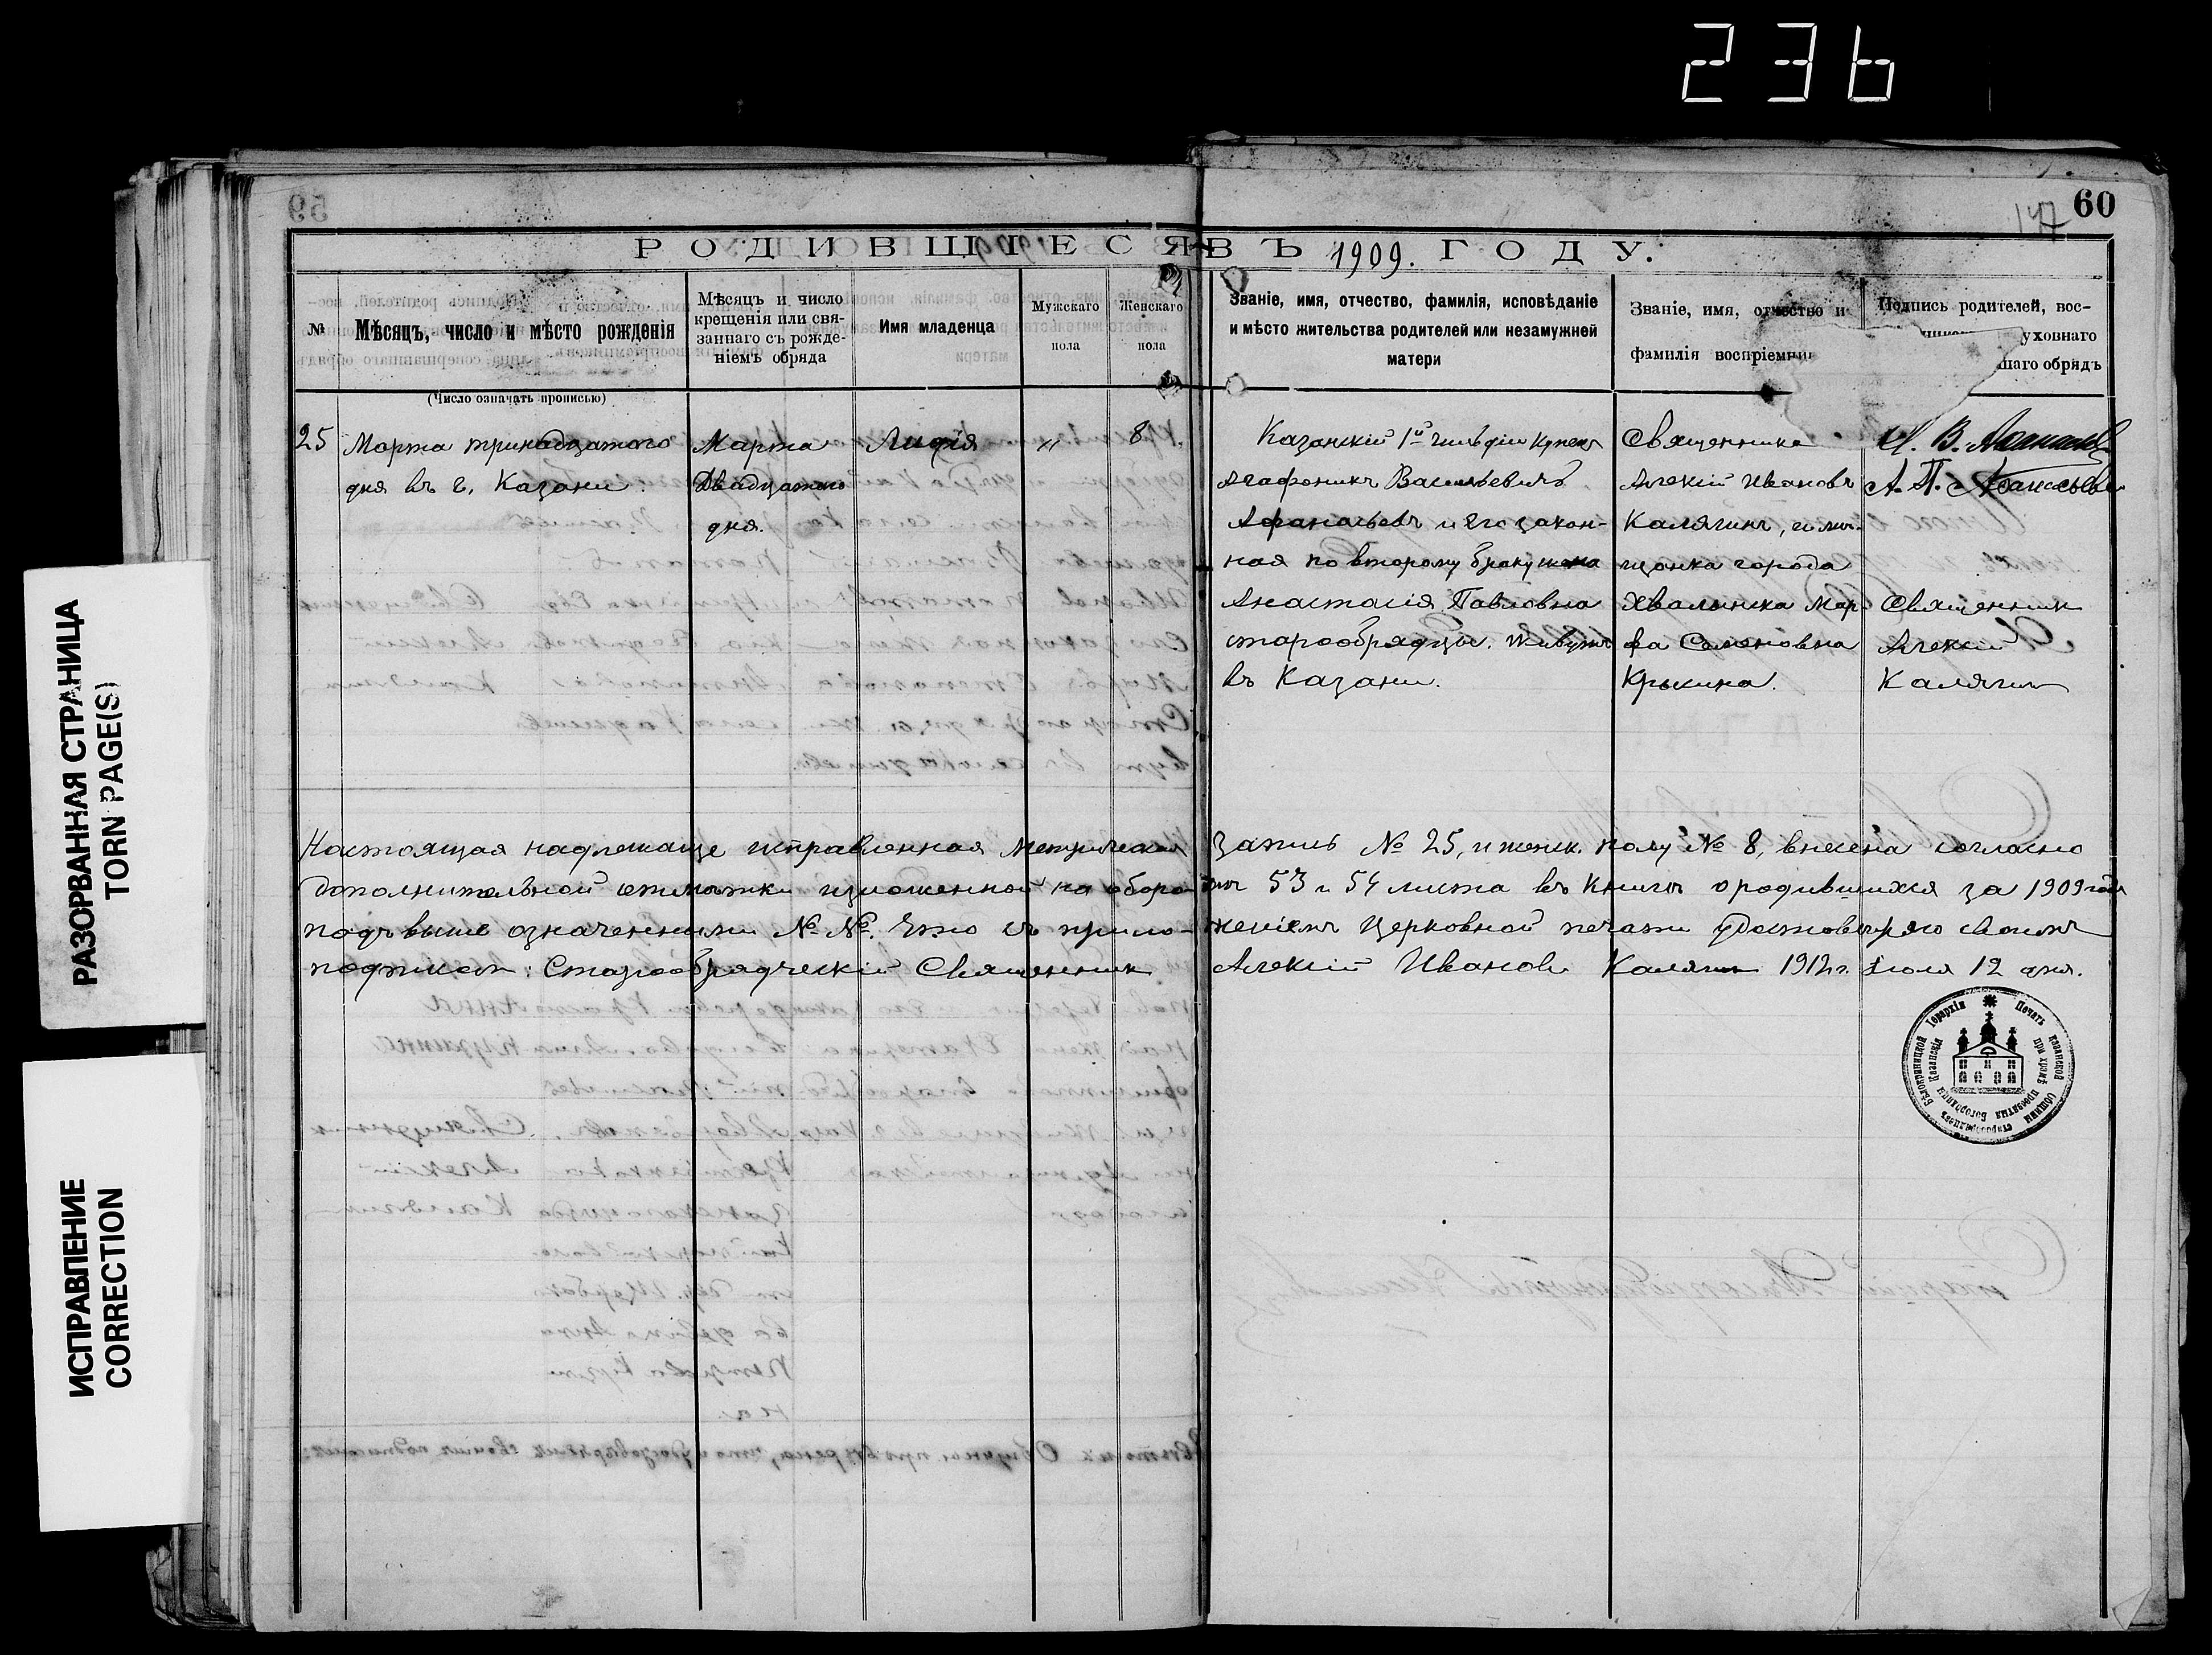 236
60
147
РОДИВШІЕСЯ ВЪ 1909. ГОДУ.
№
Мѣсяцъ, число и мѣсто рожденія
Мѣсяцъ и число
крещенія или свя-
заннаго съ рожде-
ніемъ обряда
Имя младенца
Мужскаго
пола
Женскаго
пола
Званіе, имя, отчество, фамилія, исповѣданіе
и мѣсто жительства родителей или незамужней
матери
Званіе, имя, отчество и
фамилія воспріемни
Подпись родителей, вос-
уховнаго
шаго обрядъ
(Число означать прописью)
25
Марта тринадцатого
дня въ г. Казани.
Марта
Двадцатого
дня.
Лидія
"
8.
Казанскій 1й гильдіи купецъ
Агафоникъ Васильевичъ
Афанасьевъ и его закон-
ная по второму браку жена
Анастасія Павловна
старообрядцы. живутъ
въ Казани.
Священника
Алексій Ивановъ
Калягинъ, и мѣ-
щанка города
Хвалынска Мар-
фа Семеновна
Крыкина.
А. В. Афанасьевъ
А. П. Афанасьева
Священник
Алексій
Калягин
Настоящая надлежаще исправленная метрическая запись № 25, и женск. полу № 8, внесена согласно
дополнительной отмѣтки изложенной на оборотѣ 53 и 54 листа въ книгѣ о родившихся за 1909 годъ
подъ выше означенными №№. Что съ прило-женіемъ Церковной печати удостовѣряю своимъ
подписом: Старообрядческій Священник Алексій Иванов Калягин 1912 г. Іюля 12 дня.
Печать казанской общины старообрядцевъ Бѣлокриницкой Іерархіи
при храмѣ Казанскія пресвятыя Богородицы
РАЗОРВАННАЯ СТРАНИЦА
TORN PAGE(S)
ИСПРАВЛЕНИЕ
CORRECTION